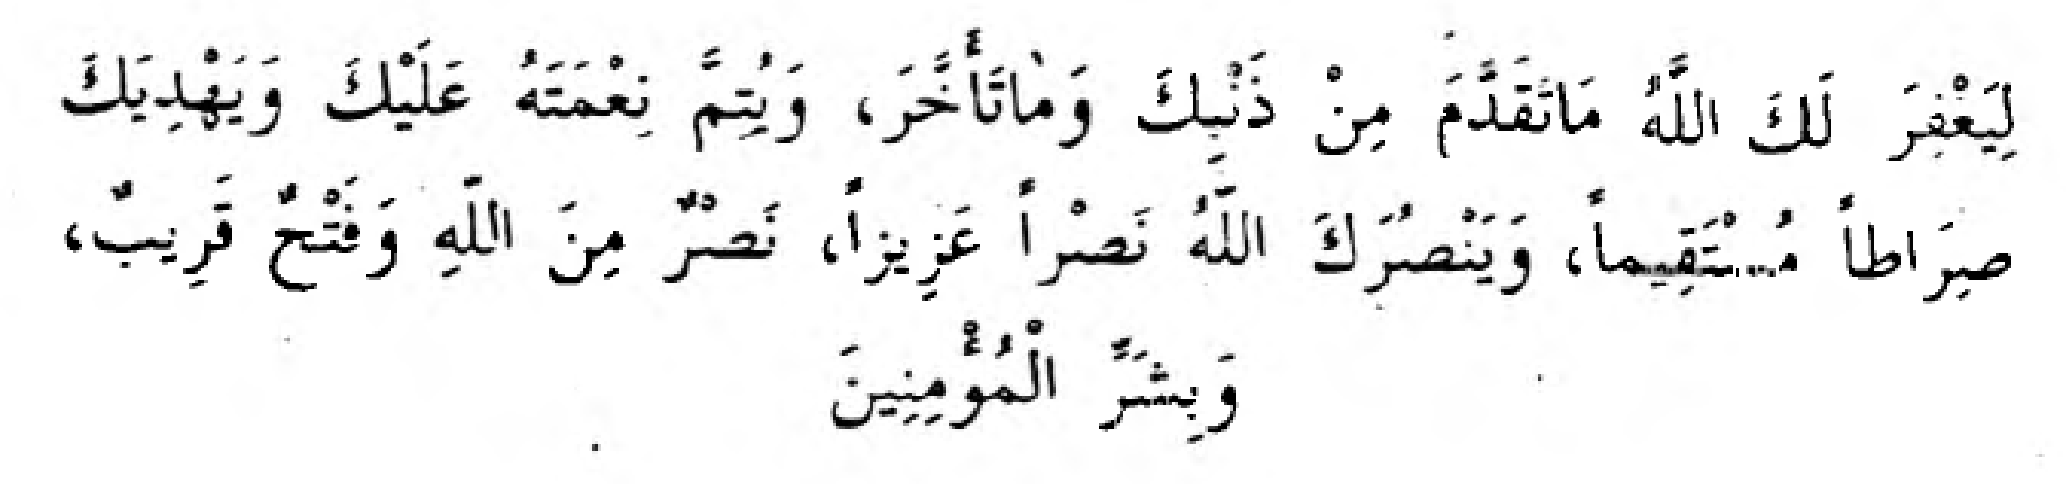 لِيَغْفِرَ لَكَ اللَّهُ مَاتَقَدَّمَ مِنْ ذَنْبِكَ وَمَاتَأَخَّرَ، وَيُتِمَّ نِعْمَتَهُ عَلَيْكَ وَيَهْدِيَكَ
صِرَاطاً مُسْتَقِيماً، وَيَنْصُرَكَ اللَّهُ نَصْراً عَزِيزاً، نَصْرٌ مِنَ اللَّهِ وَفَتْحٌ قَرِيبٌ،
وَبِشَرَّ الْمُؤْمِنِينَ